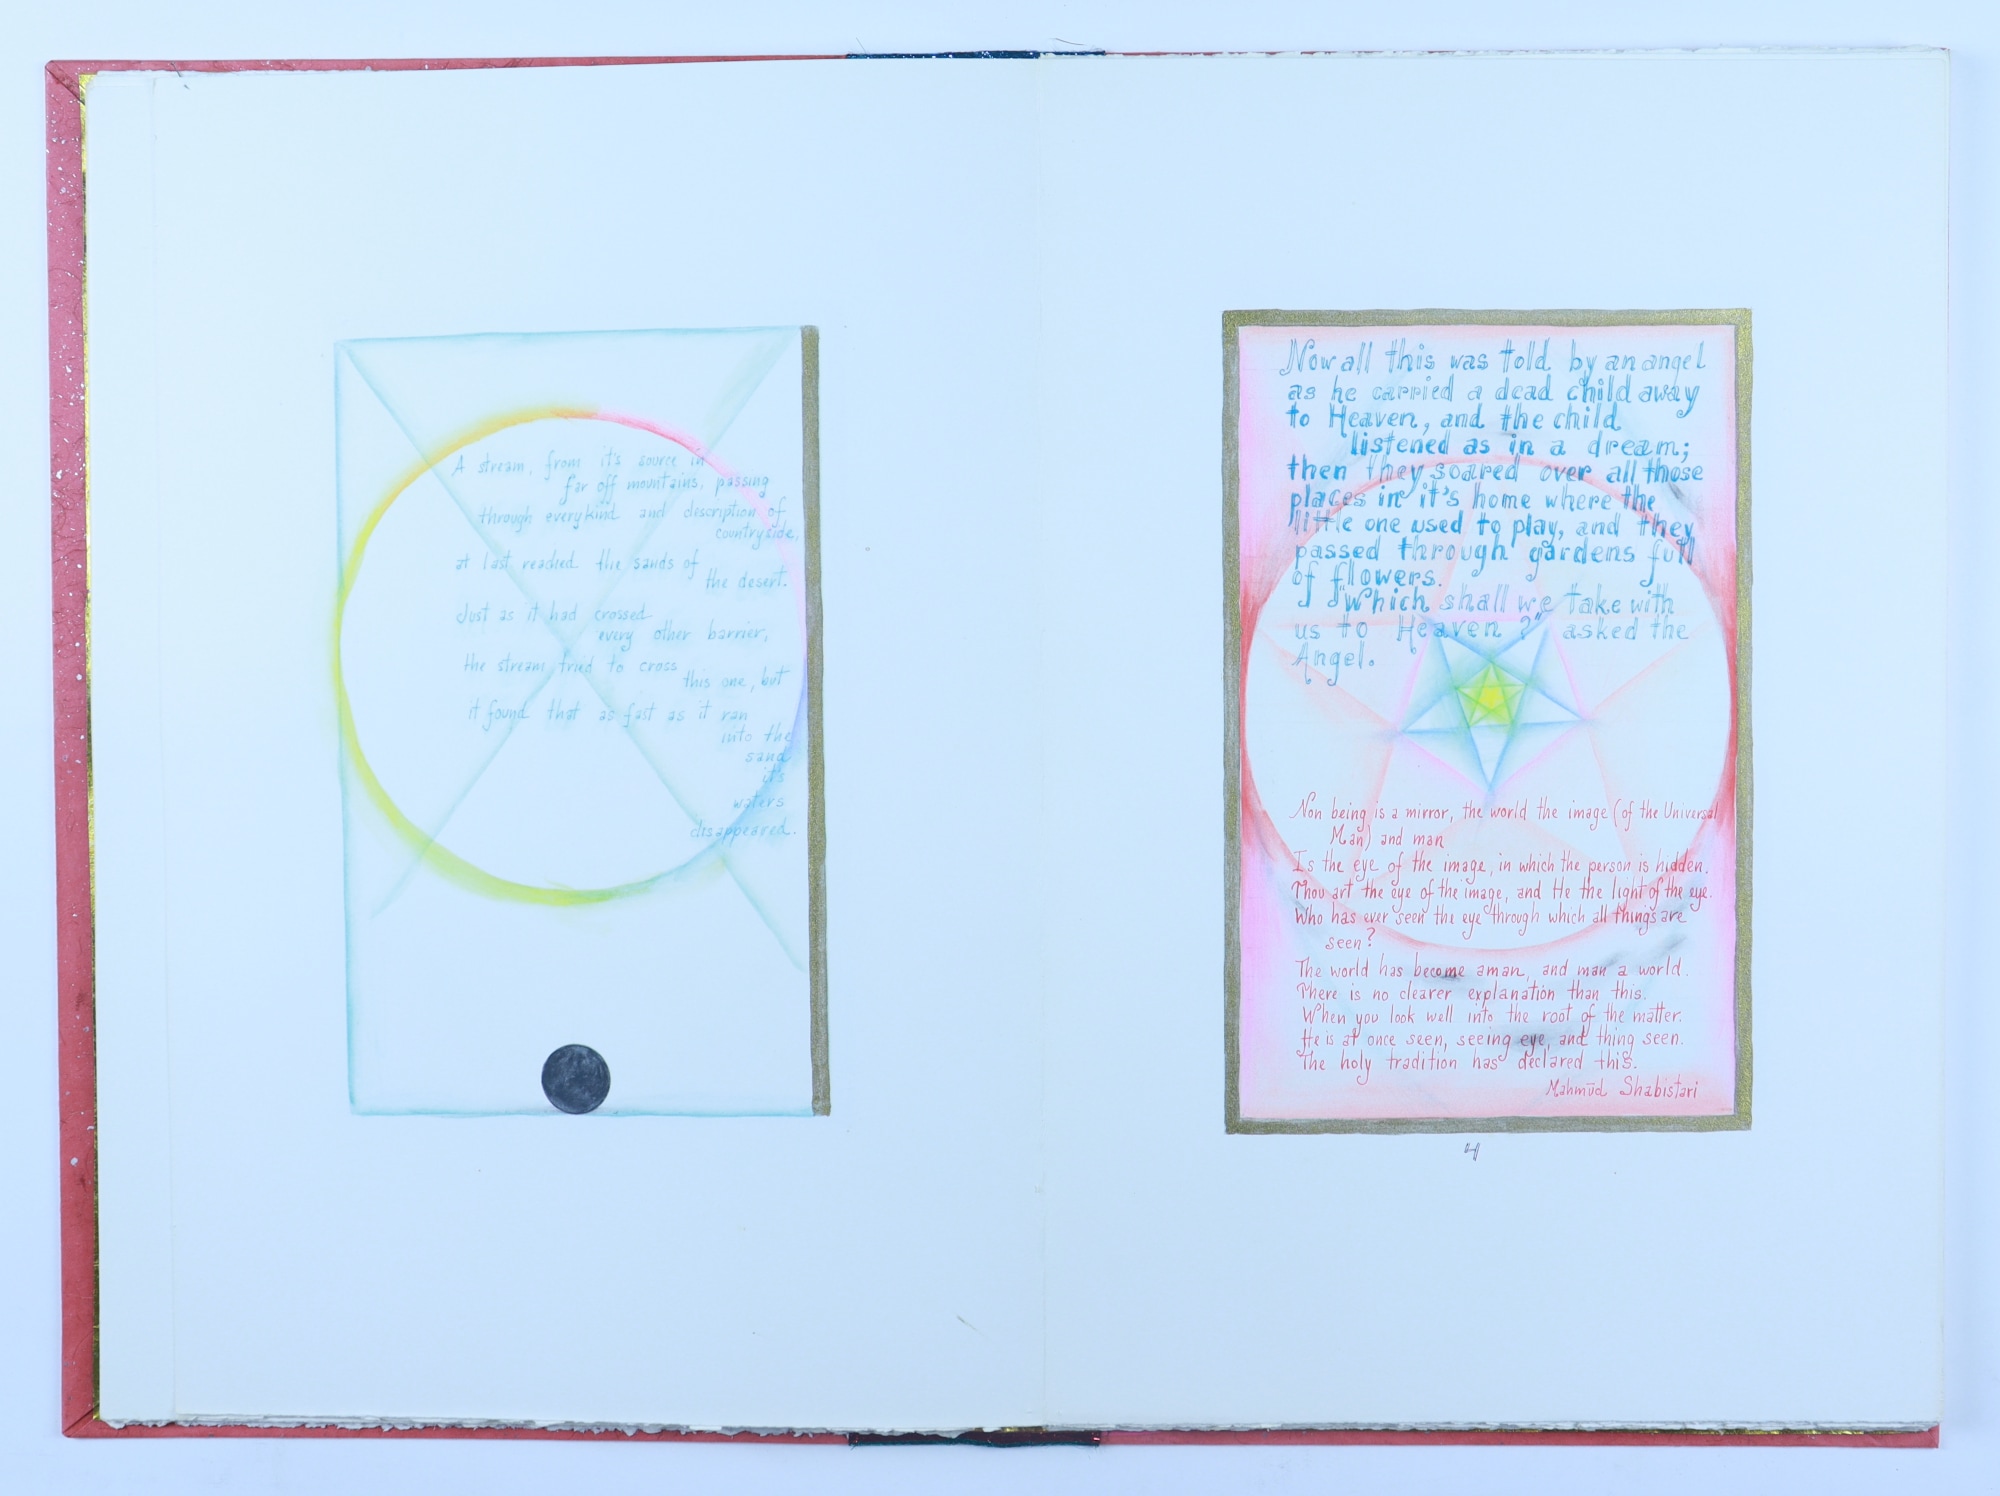 A stream, from it's source in
far off mountains, passing
through every kind and description of
countryside,
at last reached the sands of
the desert.
Just as it had crossed
every other barrier,
the stream tried to cross
this one, but
it found that as fast as it ran
into the
sand
it's
waters
disappeared.
Now all this was told by an angel
as he carried a dead child away
to Heaven, and the child
listened as in a dream;
then they soared over all those
places in it's home where the
little one used to play, and they
passed through gardens full
of flowers.
"Which shall we take with
us to Heaven?" asked the
Angel.
Non being is a mirror, the world the image (of the Universal
Man) and man
Is the eye of the image, in which the person is hidden.
Thou art the eye of the image, and He the light of the eye.
Who has ever seen the eye through which all things are
seen?
The world has become a man, and man a world.
There is no clearer explanation than this.
When you look well into the root of the matter.
He is at once seen, seeing eye, and thing seen.
The holy tradition has declared this.
Mahmūd Shabistari
4